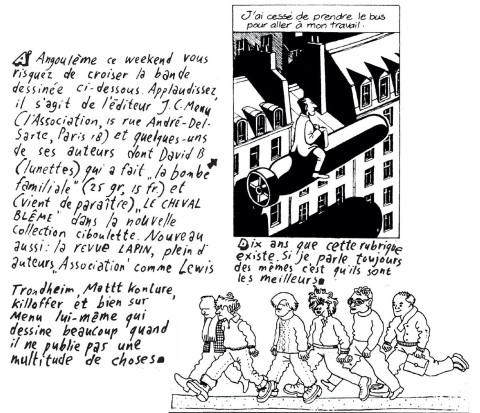 A Angoulême ce weekend vous
risquez de croiser la bande
dessinée ci-dessous. Applaudissez,
il s'agit de l'éditeur J.C. Menu
(l'Association, 15 rue André-Del-
Sarte, Paris 18) et quelques-uns
de ses auteurs dont David B
(lunettes) qui a fait "la bombe
familiale" (25 gr, 15 fr.) et
(vient de paraître) "LE CHEVAL
BLÊME" dans la nouvelle
collection ciboulette. Nouveau
aussi: la revue LAPIN, plein d'
auteurs "Association" comme Lewis
Trondheim, Mattt Konture,
Killoffer et bien sur
Menu lui-même qui
dessine beaucoup quand
il ne publie pas une
multitude de choses.
J'ai cessé de prendre le bus
pour aller à mon travail.
Dix ans que cette rubrique
existe. Si je parle toujours
des mêmes c'est qu'ils sont
les meilleurs.